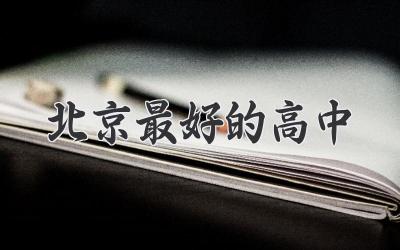 北京最好的高中